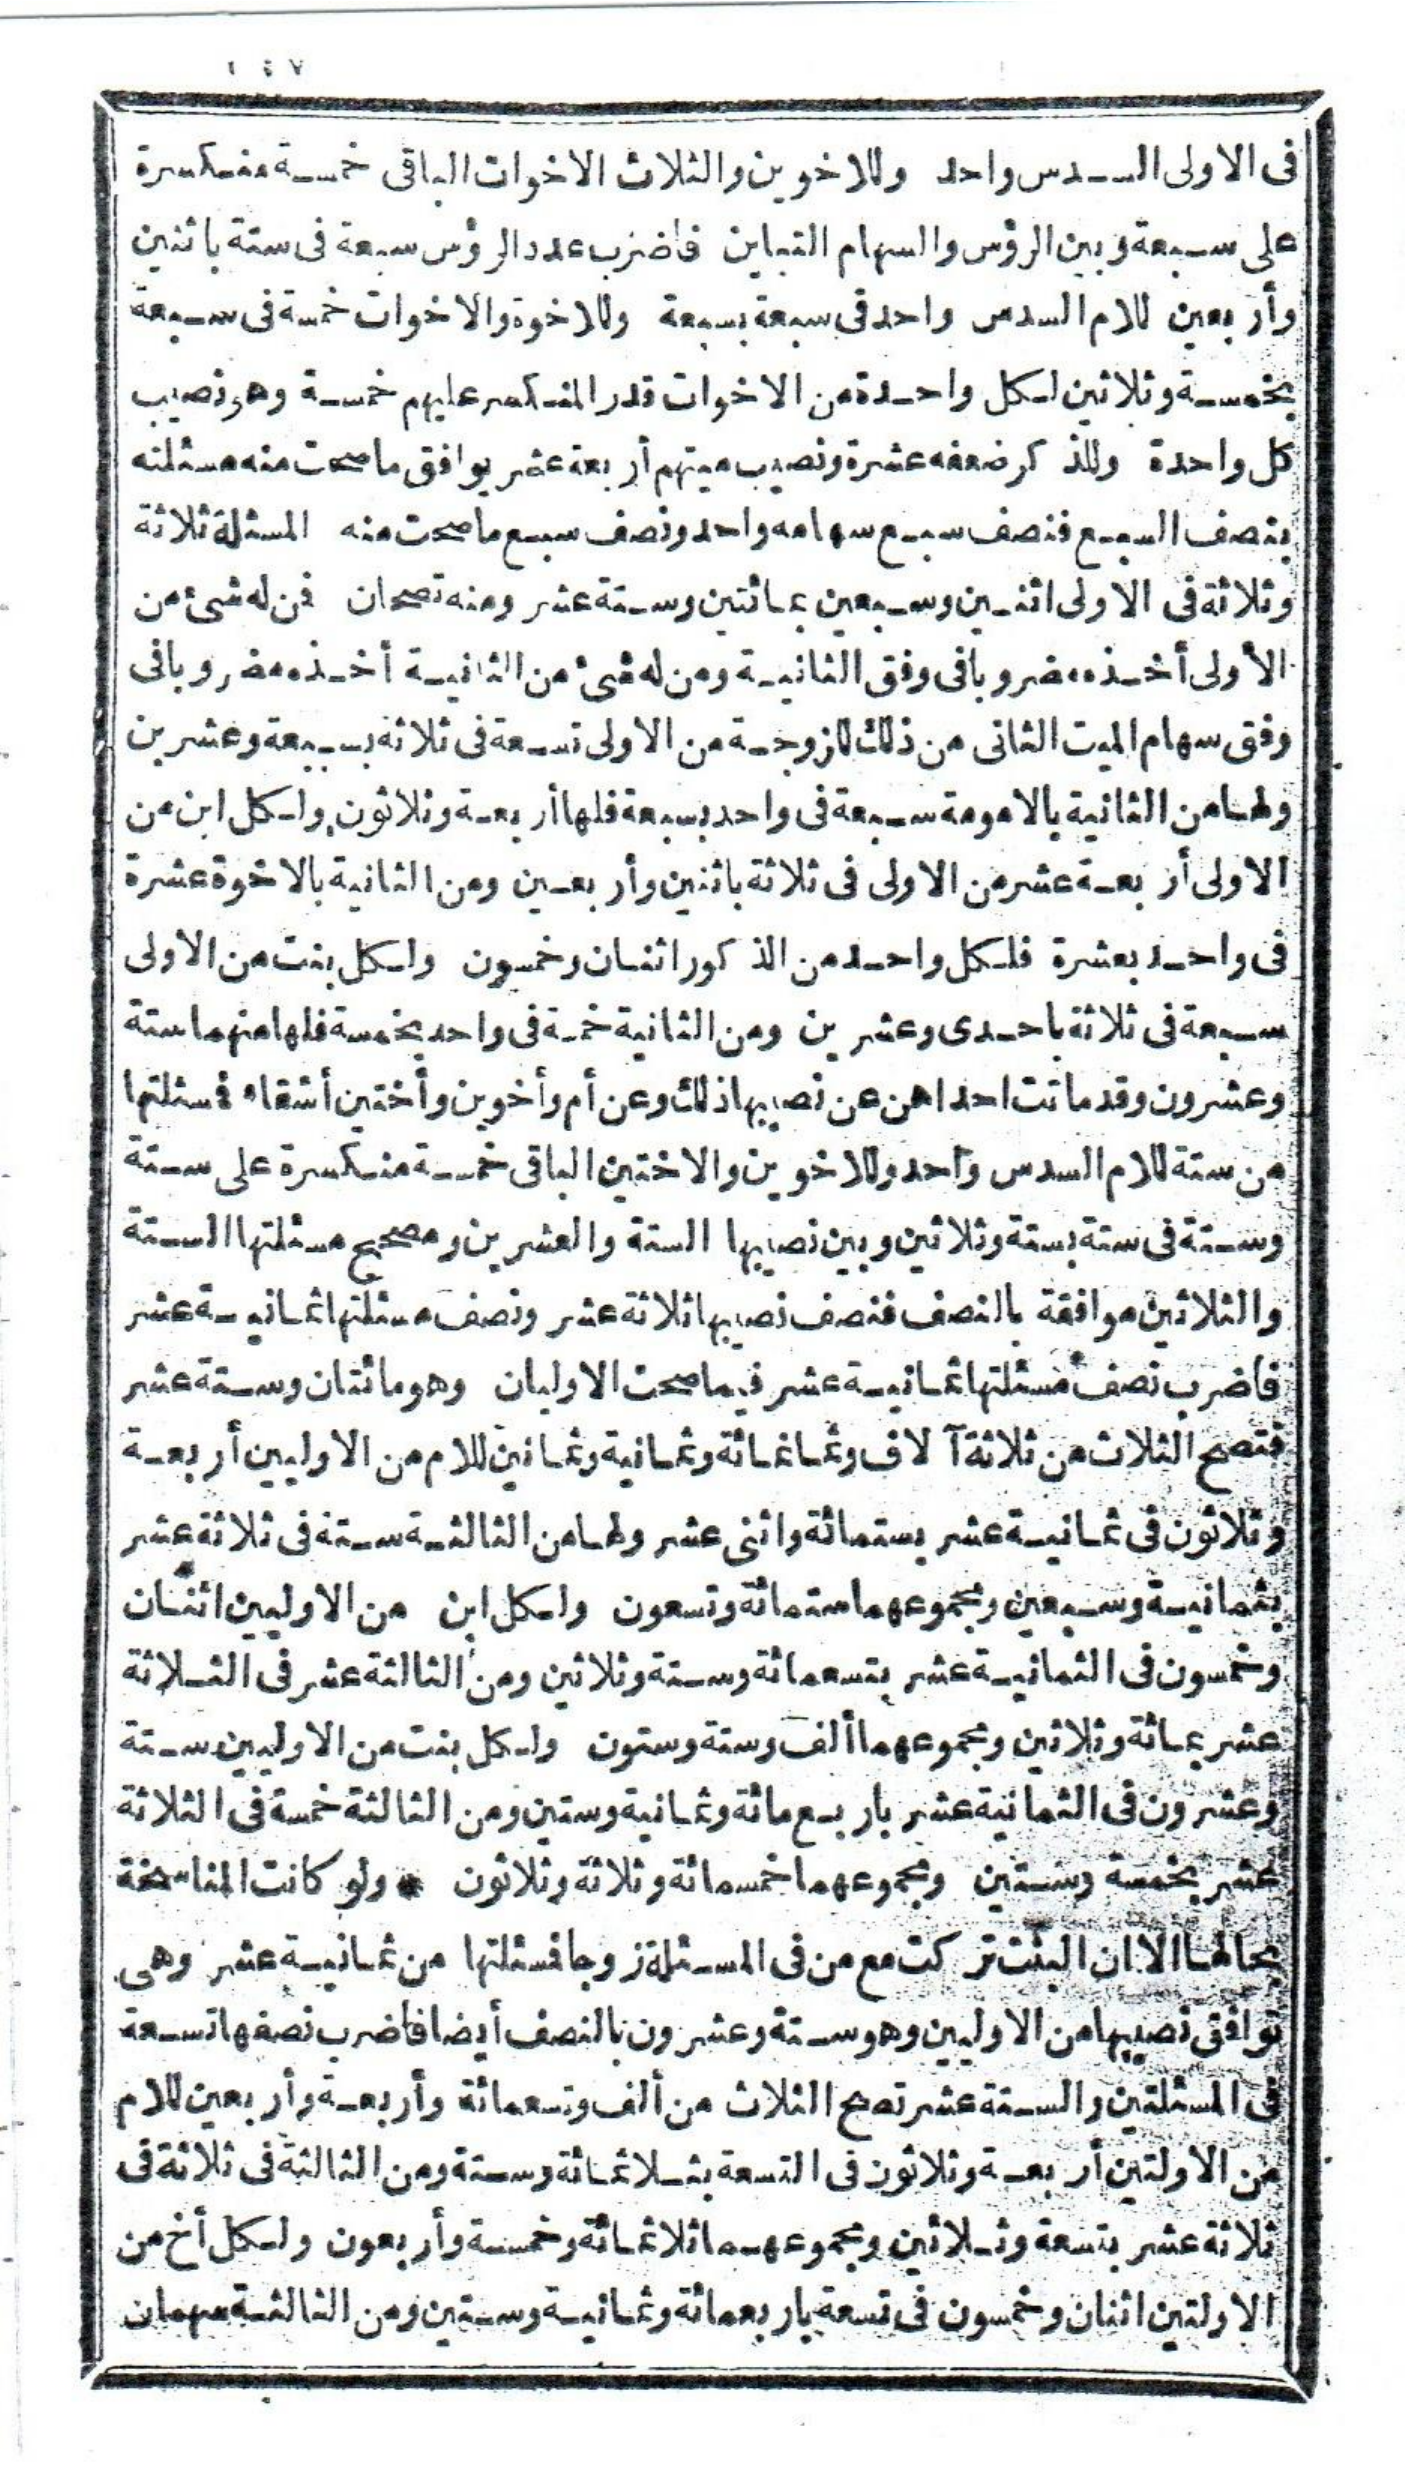 ١٤٧
فى الاولى السدس واحد وللاخوين والثلاث الاخوات الباقى خمسة منكسرة
على سبعة وبين الرؤس والسهام التباين فاضرب عدد الرؤس سبعة فى ستة باثنين
وأربعين للام السدس واحد فى سبعة بسبعة وللاخوة والاخوات خمسة فى سبعة
بخمسة وثلاثين لكل واحدة من الاخوات قدر المنكسر عليهم خمسة وهو نصيب
كل واحدة وللذكر ضعفه عشرة ونصيب ميتهم أربعة عشر يوافق ما صحت منه مسئلته
بنصف السبع فنصف سبع سهامه واحد ونصف سبع ما صحت منه المسئلة ثلاثة
وثلاثة فى الاولى اثنين وسبعين بمائتين وستة عشر ومنه تصحان فن له شئ من
الأولى أخذه مضروبا فى وفق الثانية ومن له شئ من الثانية أخذه مضروبا فى
وفق سهام الميت الثانى من ذلك للزوجة من الاولى تسعة فى ثلاثة بسبعة وعشرين
ولها من الثانية بالامومة سبعة فى واحد بسبعة فلها أربعة وثلاثون ولكل ابن من
الاولى أربعة عشر من الاولى فى ثلاثة باثنين وأربعين ومن الثانية بالاخوة عشرة
فى واحد بعشرة فلكل واحد من الذكور اثنان وخمسون ولكل بنت من الاولى
سبعة فى ثلاثة باحدى وعشرين ومن الثانية خمسة فى واحد بخمسة فلها منهما ستة
وعشرون وقد ماتت احداهن عن نصيبها ذلك وعن أم وأخوين وأختين أشقاء فسئلتها
من ستة للام السدس واحد وللاخوين والاختين الباقى خمسة منكسرة على ستة
وستة فى ستة بستة وثلاثين وبين نصيبها الستة والعشرين ومصحح مسئلتها الستة
والثلاثين موافقة بالنصف فنصف نصيبها ثلاثة عشر ونصف مسئلتها ثمانية عشر
فاضرب نصف مسئلتها ثمانية عشر فيما صحت الاوليان وهو مائتان وستة عشر
فتصح الثلاث من ثلاثة آلاف وثمانمائة وثمانية وثمانين للام من الاوليين أربعة
وثلاثون فى ثمانية عشر بستمائة واثنى عشر ولها من الثالثة ستة فى ثلاثة عشر
بثمانية وسبعين ومجموعهما ستمائة وتسعون ولكل ابن من الاوليين اثنان
وخمسون فى الثمانية عشر بتسعمائة وستة وثلاثين ومن الثالثة عشر فى الثلاثة
عشر بمائة وثلاثين ومجموعهما ألف وستة وستون ولكل بنت من الاوليين ستة
وعشرون فى الثمانية عشر باربع مائة وثمانية وستين ومن الثالثة خمسة فى الثلاثة
عشر بخمسة وستين ومجموعهما خمسمائة وثلاثة وثلاثون * ولو كانت المناسخة
بحالها الا ان البنت تركت مع من فى المسئلة زوجا فسئلتها من ثمانية عشر وهى
توافق نصيبها من الاوليين وهو ستة وعشرون بالنصف أيضا فاضرب نصفها تسعة
فى المسئلتين والستة عشر تصح الثلاث من ألف وتسعمائة وأربعة وأربعين للام
من الاولتين أربعة وثلاثون فى التسعة بثلاثمائة وستة ومن الثالثة فى ثلاثة فى
ثلاثة عشر بتسعة وثلاثين ومجموعهما ثلاثمائة وخمسة وأربعون ولكل أخ من
الاولتين اثنان وخمسون فى تسعة باربعمائة وثمانية وستين ومن الثالثة سهمان